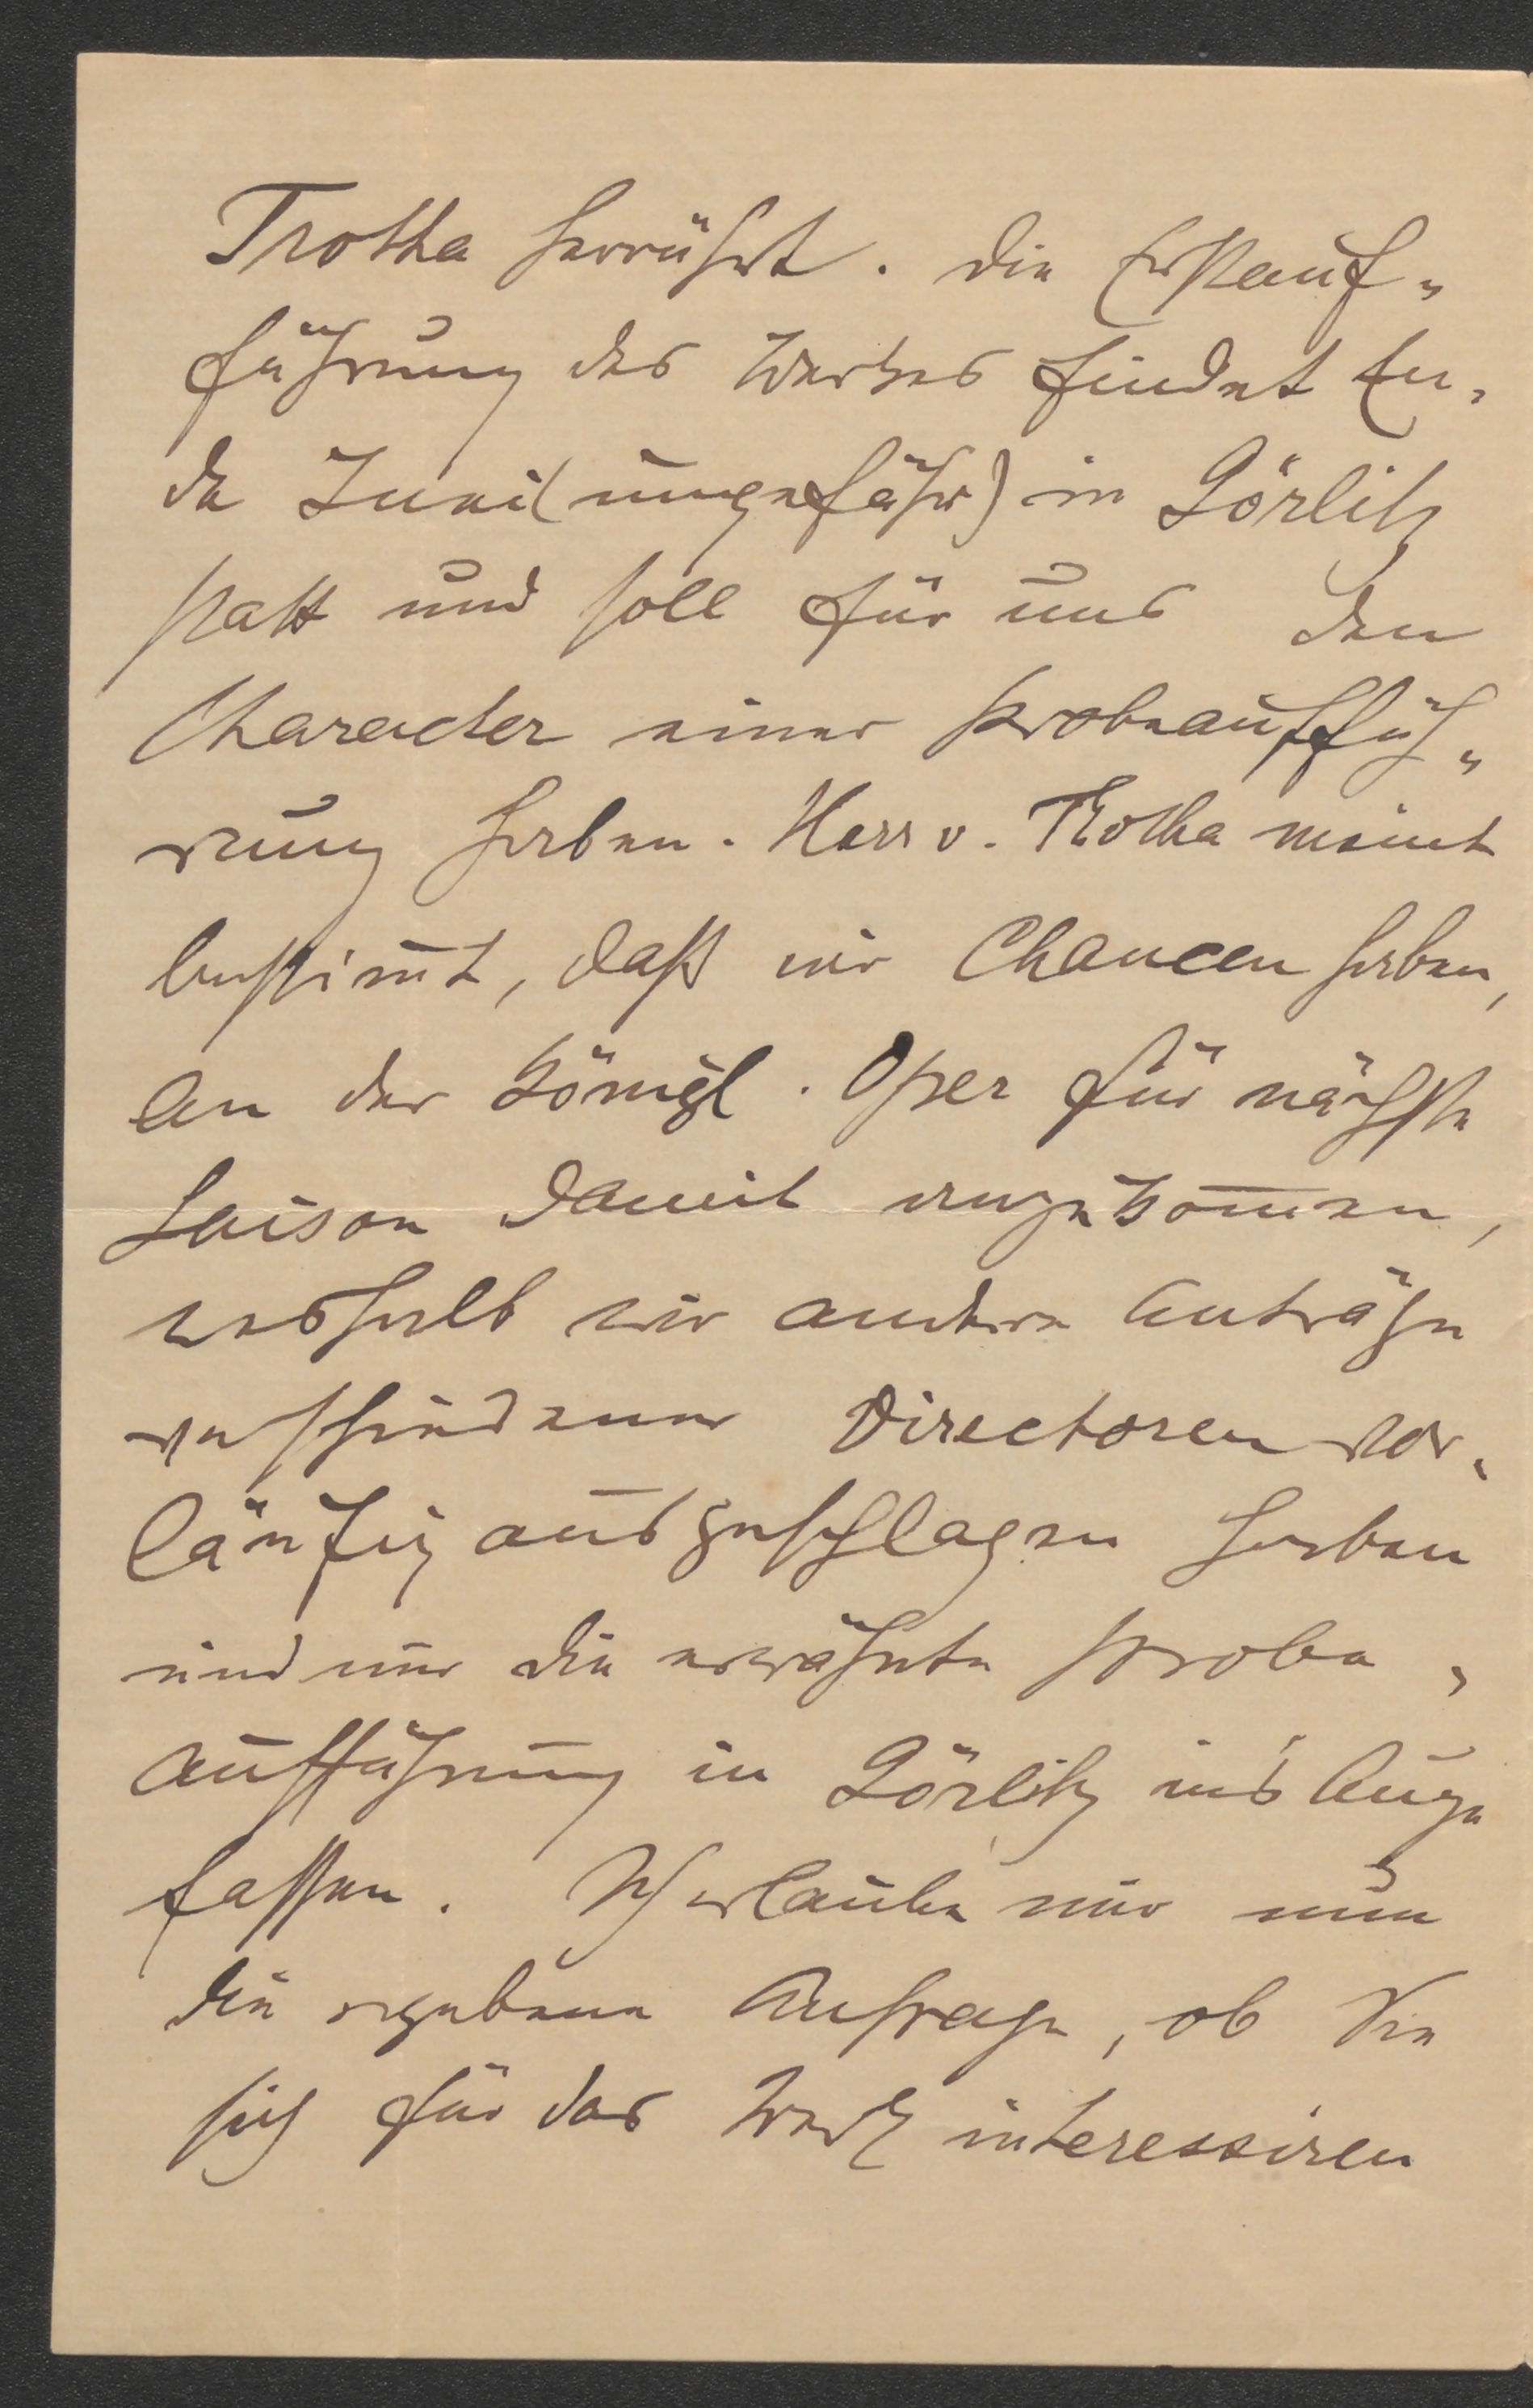 Trotha herrührt. Die Erstauf„
führung des Werkes findet En„
de Juni (ungefähr) in Görlitz
statt und soll für uns den
Character einer Probeauffüh„
rung haben. Herr v. Trotha meint
bestim̅t, daß wir Chancen haben,
an der Königl. Oper für nächste
Saison damit anzukom̅en,
weshalb wir andere Anträge
verschiedener Directoren vor„
läufig ausgeschlagen haben
und nur die erwähnte Probe„
aufführung in Görlitz in's Auge
fassen. Ich erlaube mir nun
die ergebene Anfrage, ob Sie
sich für das Werk interessiren